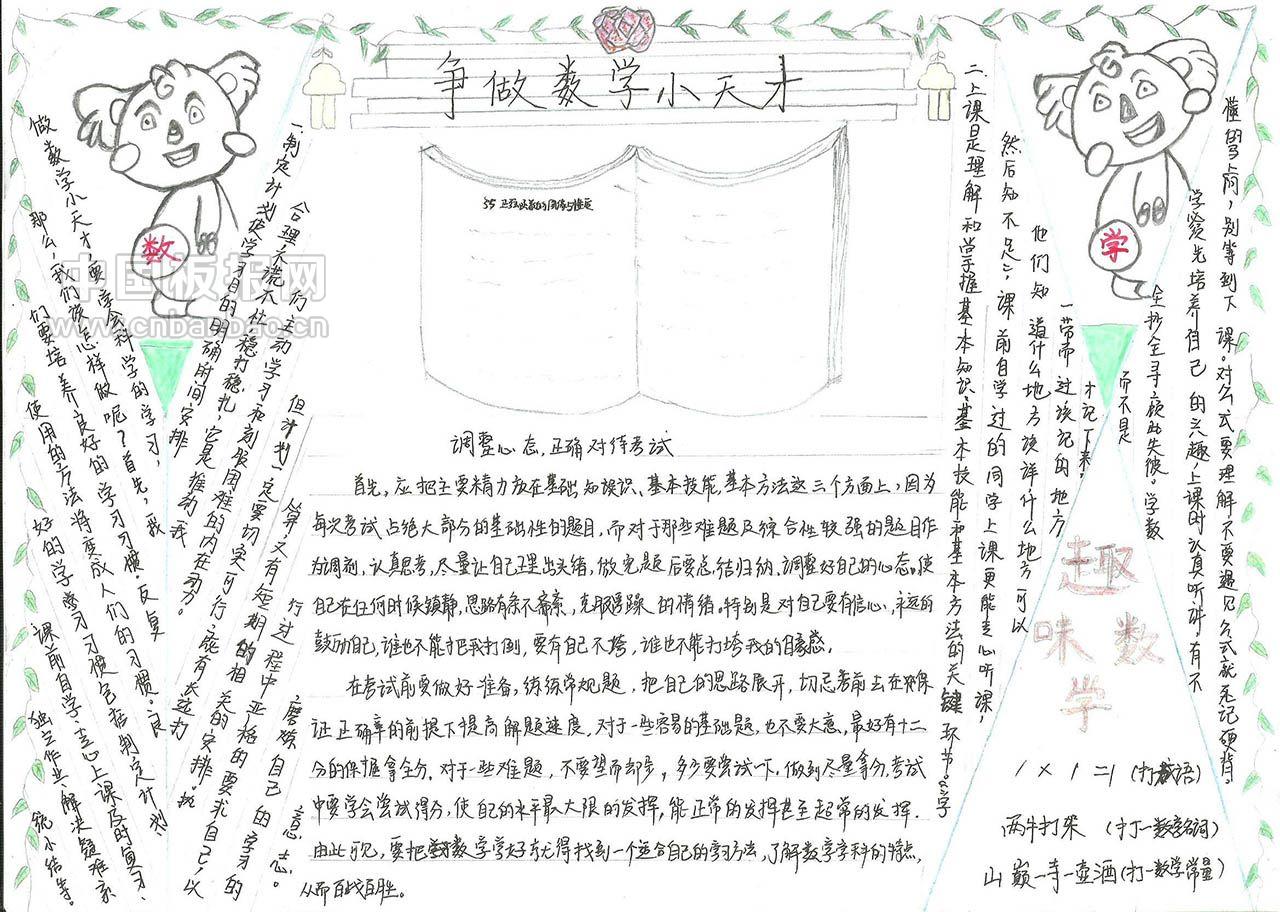 争做数学小天才
数
学
中国板报网
www.cnbanbao.cn
做数学小天才,要学会科学的学习,
那么,我们该怎样做呢?首先,我
们要培养良好的学习习惯。反复
使用的方法将变成人们的习惯。良
好的学习习惯包括制定计划、
课前自学、专心上课、及时复习、
独立作业、解决疑难、系
统小结等。
一.制定计划使学习目的明确时间安排
合理,不慌不忙,稳打稳扎,它是推动我
们主动学习和刻服困难的内在动力。
但计划一定要切实可行,既有长远打
算,又有短期的相关的安排。执
行过程中严格的要求自己,以
磨炼自己的学习的
意志。
调整心态,正确对待考试
首先,应把主要精力放在基础知识、基本技能、基本方法这三个方面上,因为
每次考试占绝大部分的基础性的题目,而对于那些难题及综合性较强的题目作
为调剂,认真思考,尽量让自己理出头绪,做完题后要总结归纳。调整好自己的心态,使
自己在任何时候镇静,思路有条不紊,克服浮躁的情绪。特别是对自己要有信心,永远的
鼓励自己,谁也不能把我打倒,要有自己不垮,谁也不能打垮我的自豪感。
在考试前要做好准备,练练常规题,把自己的思路展开,切忌考前去在确保
证正确率的前提下提高解题速度,对于一些容易的基础题,也不要大意,最好有十二
分的保握拿全分,对于一些难题,不要望而却步,多多要尝试一下,做到尽量拿分,考试
中要学会尝试得分,使自己的水平最大限的发挥,能正常的发挥甚至起常的发挥.
由此可见,要把数学学好就得找到一个适合自己的学习方法,了解数学学科的特点,
从而百战百胜。
二.上课是理解和掌握基本知识.基本技能和基本方法的关键环节。“学
然后知不足”,课前自学过的同学上课更能专心听课,
他们知道什么地方该详什么地方可以
一带而过该记的地方
才记下来,
而不是
全抄全寻顾此失彼。学数
学要先培养自己的兴趣,上课时认真听讲,有不
懂的马上问,别等到下课。对公式要理解不要遇见公式就死记硬背。
趣
味数
学
1×1=1(打成语)
两牛打架 (打一数学名词)
山巅一寺一壶酒(打一数学常量)